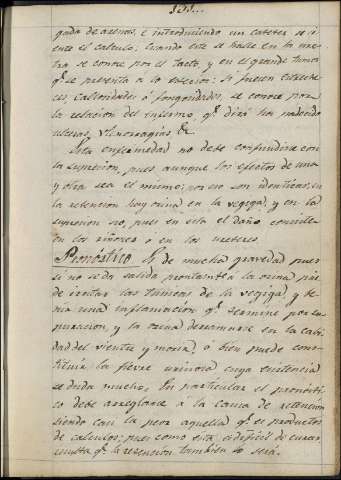 131...
gada de arenas, e introduciendo un cateter se si
ente el calculo. Cuando este se halle en la ure-
tra se conoce por el tacto y en el grande tumor
qe. se presenta a lo exterior: Si fuesen estreche-
ces, callosidades ó fungosidades, se conoce por
la relacion del enfermo, qe. dirá ha padecido
ulceras, blenorragias &c.
Esta enfermedad no debe confundirse con
la supresion, pues aunque los efectos de una
y otra sea el mismo; por eso son identicas; en
la retencion hay orina en la vegiga, y en la
supresion no, pues en esta el daño consiste
en los riñones ó en los ureteres.
Pronóstico. Es de mucha gravedad pues
si no se da salida prontamte. á la orina pue
de irritar las tunicas de la vegiga, y te-
nia una inflamacion qe. termine por su-
puracion, y la orina derramarse en la cabi-
dad del vientre y morir, ó bien puede cons-
tituir la fiebre urinosa cuya existencia
se duda mucho. En particular el pronósti-
co debe arreglarse á la causa de retencion
siendo casi la peor aquella qe. es producto
de calculos; pues como esta es dificil de curar
resulta qe. la retencion tambien lo será.